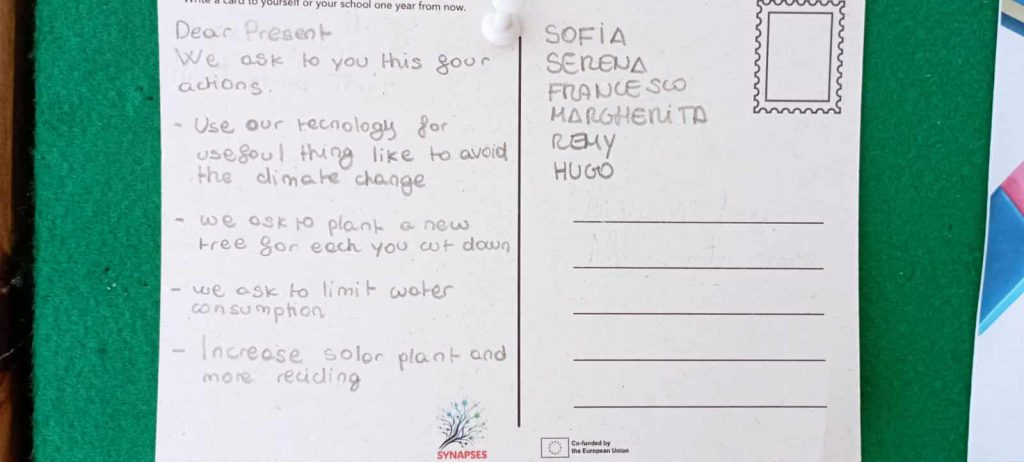 Write a card to yourself or your school one year from now.
Dear Present
We ask to you this four
actions.
- Use our tecnology for
usefoul thing like to avoid
the climate change
- we ask to plant a new
tree for each you cut down
- we ask to limit water
consumption
- Increase solar plant and
more reciding
SOFIA
SERENA
FRANCESCO
MARGHERITA
REMY
HUGO
SYNAPSES
Co-funded by
the European Union